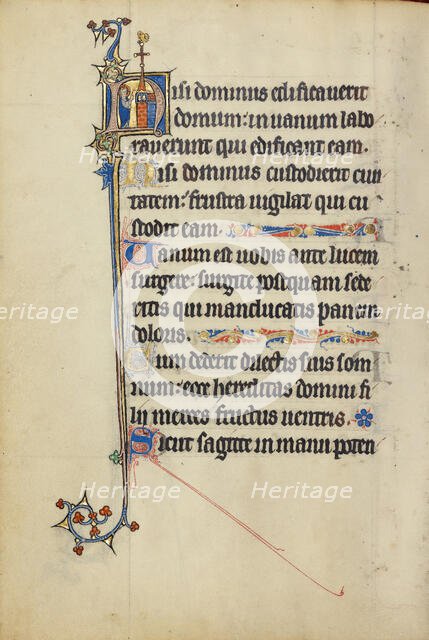 Nisi dominus edificaverit
domum: in uanum labo
rauerunt qui edificant eam.
Nisi dominus custodierit ciui
tatem: frustra uigilat qui cu
stodit eam.
Uanum est uobis ante lucem
surgere: surgite postquam sede
ritis qui manducatis panem
doloris.
Cum dederit dilectis suis som
num: ecce hereditas domini fi
lij merces fructus uentris.
Sicut sagitte in manu poten
Heritage
Heritage
Heritage
Heritage
Heritage
Heritage
Heritage
Heritage